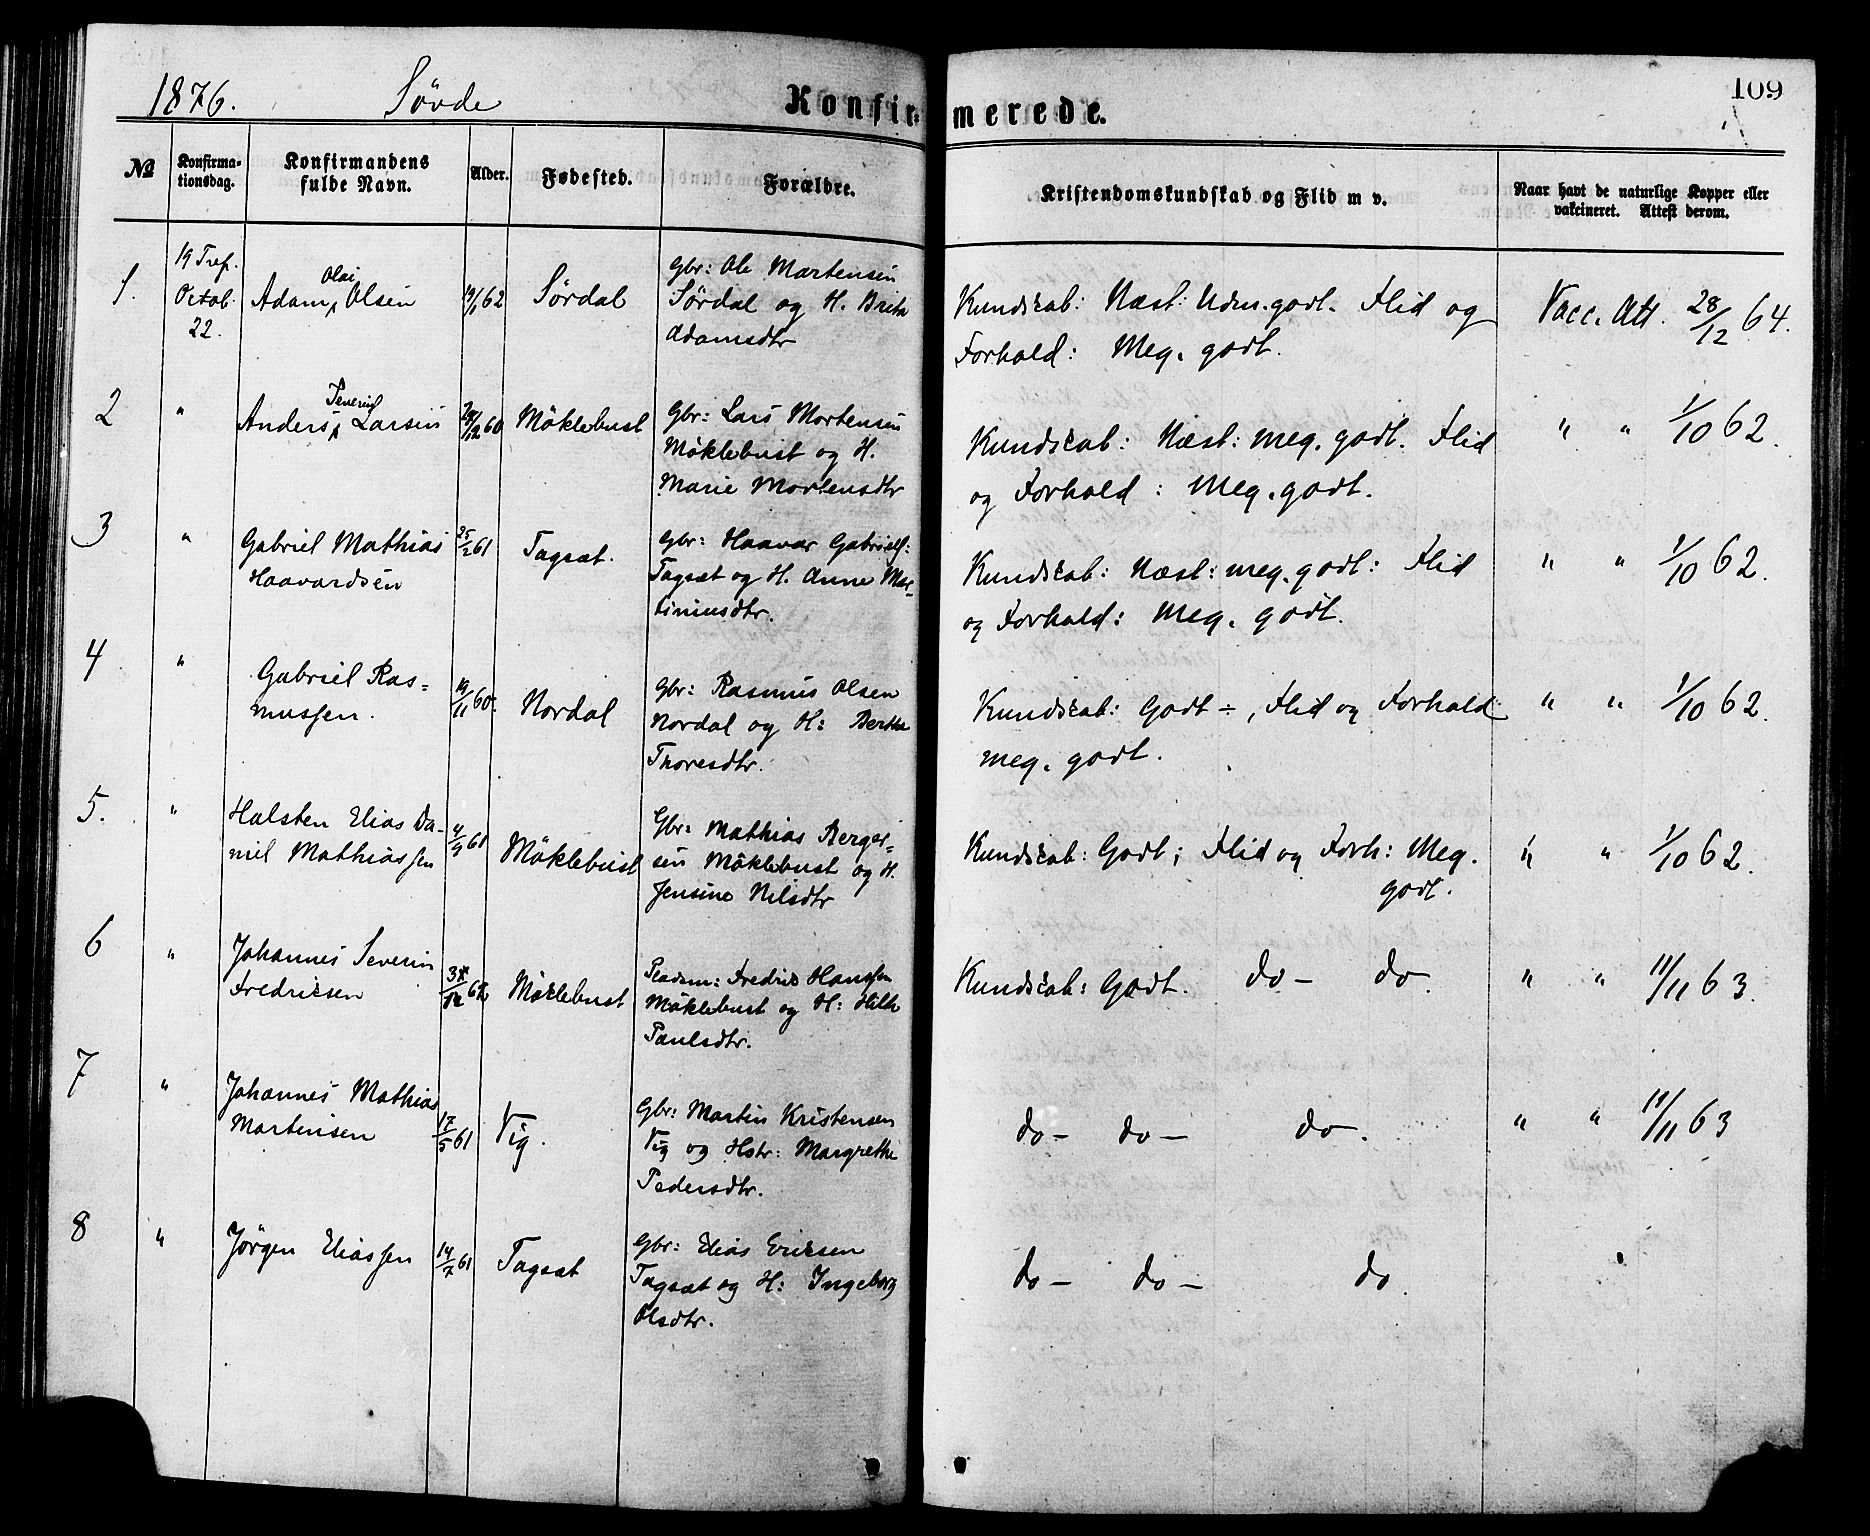 1876. Sövde Konfirmerede. 109
№ Konfirmationsdag. Konfirmandens fulde Navn. Alder. Fødested. Forældre. Kristendomskundskab og Flid m v. Naar havt de naturlige Kopper eller vakcineret. Attest derom.
1. 19 Tref. Octob. 22. Adam Olai Olsen 19/1 62 Sørdal
Gbr: Ole Martensen
Sørdal og H. Brithe
Adamsdtr
Kundskab: Næst: Udm. godt. Flid og
Forhold: Meg. godt.
Vacc. Att. 28/12 64.
2 " Anders Severin Larsen 29/12 60 Möklebust
Gbr: Lars Mortensen
Möklebust og H.
Marie Mortensdtr
Kundskab: Næst: meg. godt. Flid
og Forhold: Meg. godt.
" " 1/10 62.
3 " Gabriel Mathias
Haavardsen
25/2 61 Tagsæt.
Gbr: Haavar Gabriels:
Tagsæt og H. Anne Mar-
tiniusdtr.
Kundskab: Næst: meg. godt: Flid
og Forhold: Meg. godt.
" " 1/10 62.
4 " Gabriel Ras=
mussen.
19/11 60. Nordal
Gbr: Rasmus Olsen
Nordal og H: Berthe
Thoresdtr.
Kundskab: Godt ÷, Flid og Forhold
meg. godt.
" " 1/10 62.
5. " Halsten Elias Da-
niel Mathiassen
4/9 61 Möklebust
Gbr: Mathias Berger=
sen Möklebust og H.
Jensine Nilsdtr
Kundskab: Godt; Flid og Forh: Meg.
godt.
" " 1/10 62.
6 " Johannes Severin
Fredriksen
Möklebust
Pladsm: Fredrik Hanssen
Möklebust og H: Hilke
Paulsdtr.
Kundskab: Godt. do - do.
" " 11/11 63.
7 " Johannes Mathias
Martinsen
17/5 61 Vig.
Gbr: Martin Kristensen
Vig og Hstr: Margrethe
Pedersdtr.
do - do - do.
" " 11/11 63
8 " Jörgen Eliassen 14/7 61 Tagsæt
Gbr: Elias Ericsen
Tagsæt og H: Ingeborg
Olsdtr.
do - do - do.